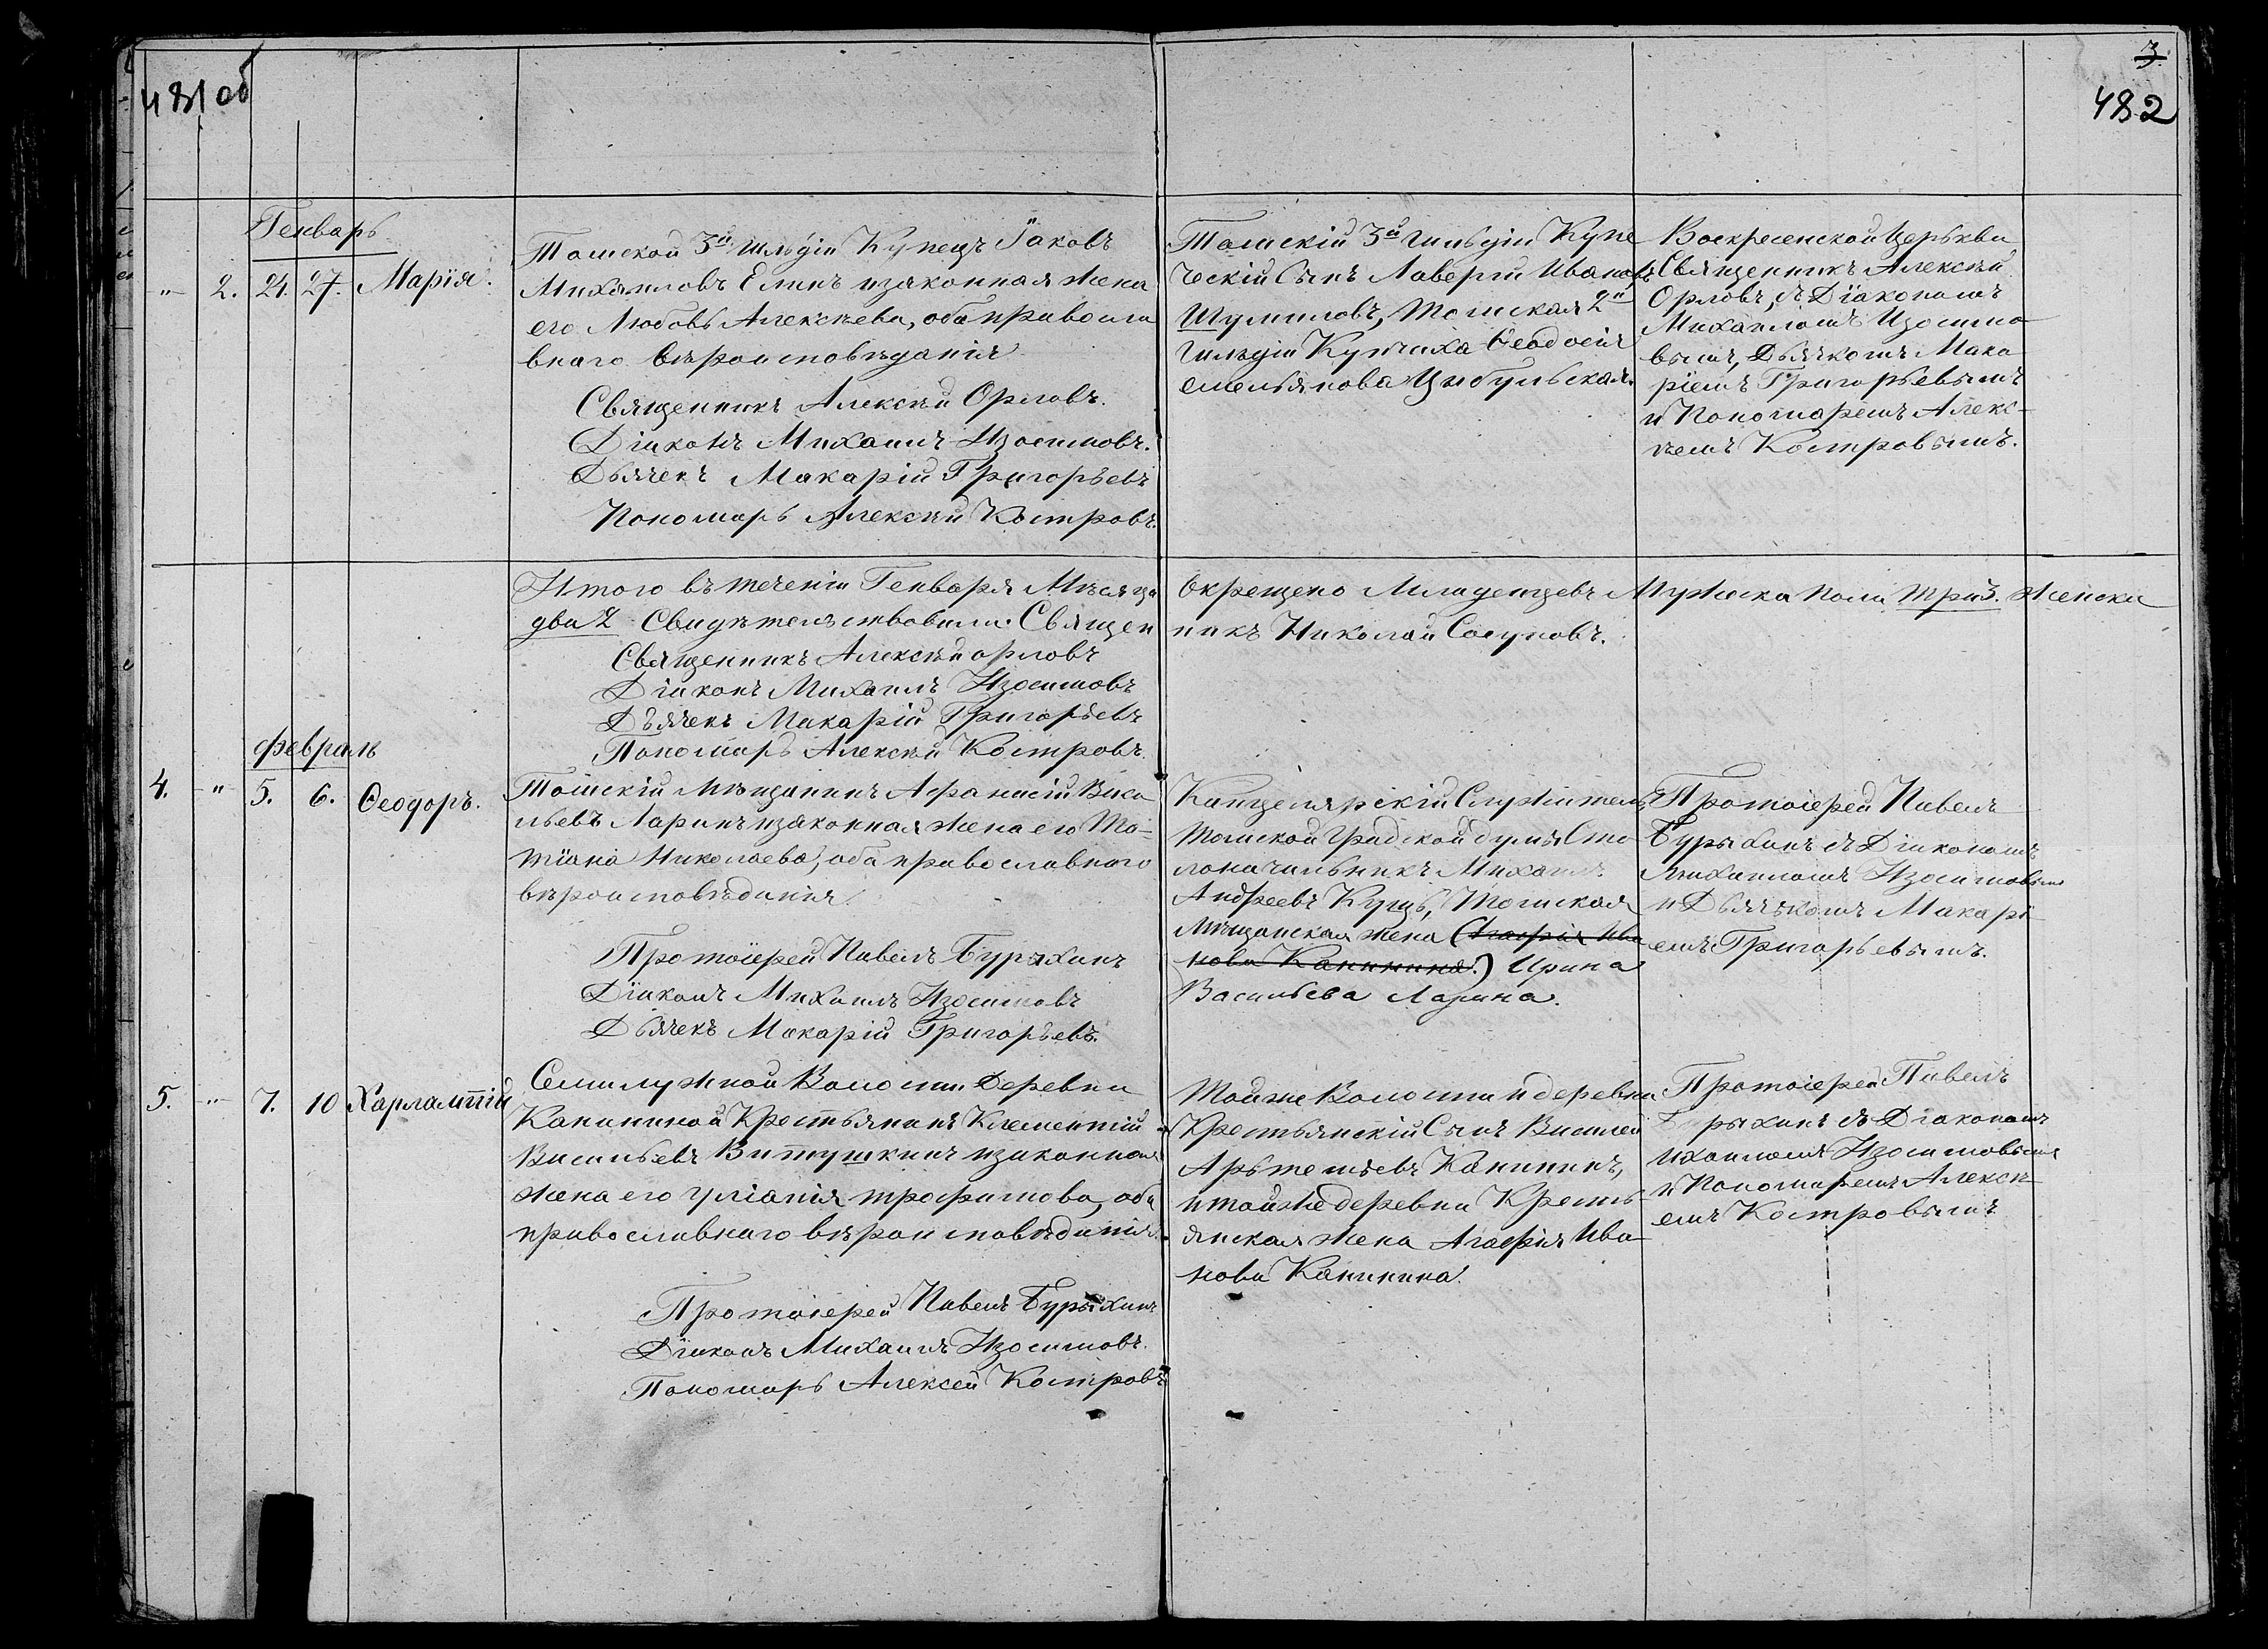 481 об
3
482
Генварь
" 2. 21. 27. Марія.
Томской 3й гильдіи Купецъ Іаковъ
Михаиловъ Елинъ и законная жена
его Любовь Алексѣева, оба правосла
внаго вѣроисповѣданія
Священникъ Алексѣй Орловъ.
Діаконъ Михаилъ Изосимовъ.
Дьячекъ Макарій Григорьевъ
Пономарь Алексѣй Костровъ.
Томскій 3й гильдіи Купе
ческій Сынъ Лаверій Ивановъ
Шумиловъ, Томская 2й
гильдіи Купчиха Ѳеодосія
емельянова Цибульская.
Воскресенской Церькви
Священникъ Алексѣй
Орловъ, съ Діакономъ
Михаиломъ Изосимо
вымъ, Дьячкомъ Мака
ріемъ Григорьевымъ
и Пономаремъ Алекс-
ѣемъ Костровымъ.
Итого въ теченіи Генваря Мѣсяца
два 2 Свидѣтельствовали: Священ
Священникъ Алексѣй орловъ
Діаконъ Михаилъ Изосимовъ
Дьячекъ Макарій Григорьевъ
Пономарь Алексѣй Костровъ.
Окрещено Младенцевъ Мужеска пола три 3. Женска
никъ Николай Сосуновъ.
февраль
4. " 5. 6. Ѳеодоръ.
Томскій Мѣщанинъ Афанасій Васи
льевъ Ларинъ и законная жена его Та-
тіана Николаева, оба православнаго
вѣроисповѣданія
Протоіерей Павелъ Бурыхинъ
Діаконъ Михаилъ Изосимовъ
Дьячекъ Макарій Григорьевъ.
Канцелярскій Служитель
Томской Градской думы Сто
лоначальникъ Михаилъ
Андреевъ Куцъ, Томская
Мѣщанская жена (Агафія Ива
нова Канинина.) Ирина
Васильева Ларина.
Протоіерей Павелъ
Бурыхинъ съ Діакономъ
Михаиломъ Изосимовымъ
и Дьячькомъ Макарі
емъ Григорьевымъ.
5. " 7. 10 Харлампій
Семилужной Волости Деревни
Канининой Крестьянинъ Клементій
Васильевъ Витушкинъ и законная
жена его Уліанія трофимова, оба
православнаго вѣроисповѣданія.
Протоіерей Павелъ Бурыхинъ
Діаконъ Михаилъ Изосимовъ.
Пономарь Алексей Костровъ
Тойже Волости и деревни
Крестьянскій Сынъ Василей
Арьтемьевъ Канининъ,
и тойже деревни Кресть-
янская жена Агафія Ива-
нова Канинина.
Протоіерей Павелъ
Бурыхинъ съ Діакономъ
Михаиломъ Изосимовымъ
и Пономаремъ Алексѣ-
емъ Костровымъ